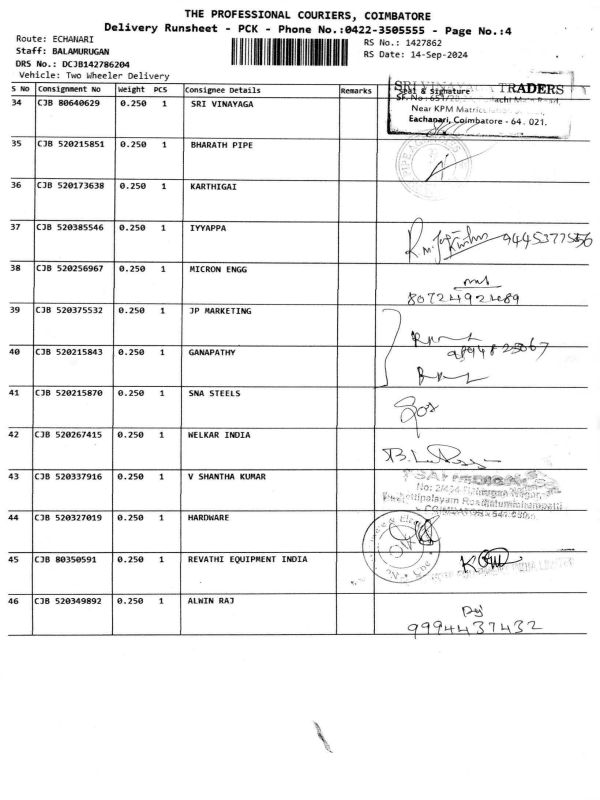 THE PROFESSIONAL COURIERS, COIMBATORE
Delivery Runsheet - PCK - Phone No.:0422-3505555 - Page No.:4
Route: ECHANARI RS No.: 1427862
Staff: BALAMURUGAN RS Date: 14-Sep-2024
DRS No.: DCJB142786204
Vehicle: Two Wheeler Delivery
S No Consignment No Weight PCS Consignee Details Remarks Seal & Signature
TRADERS
34 CJB 80640629 0.250 1 SRI VINAYAGA
Near KPM
Eachanari, Coimbatore - 64 . 021.
35 CJB 520215851 0.250 1 BHARATH PIPE
36 CJB 520173638 0.250 1 KARTHIGAI
37 CJB 520385546 0.250 1 IYYAPPA
38 CJB 520256967 0.250 1 MICRON ENGG
8072492489
39 CJB 520375532 0.250 1 JP MARKETING
40 CJB 520215843 0.250 1 GANAPATHY
41 CJB 520215870 0.250 1 SNA STEELS
42 CJB 520267415 0.250 1 WELKAR INDIA
43 CJB 520337916 0.250 1 V SHANTHA KUMAR
44 CJB 520327019 0.250 1 HARDWARE
45 CJB 80350591 0.250 1 REVATHI EQUIPMENT INDIA
46 CJB 520349892 0.250 1 ALWIN RAJ
9994437432